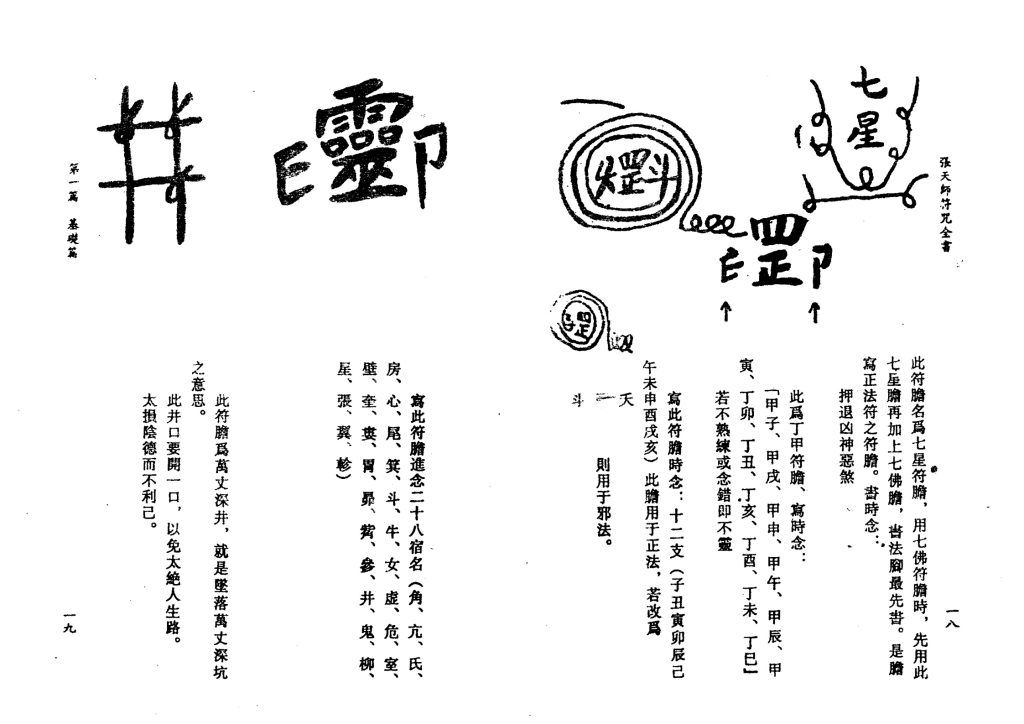 張天師符咒全書
七星
罡
此符膽名爲七星符膽，用七佛符膽時，先用此
七星膽再加上七佛膽，書法腳最先書。是膽
寫正法符之符膽。書時念：
押退凶神惡煞
此爲丁甲符膽、寫時念：
「甲子、甲戌、甲申、甲午、甲辰、甲
寅、丁卯、丁丑、丁亥、丁酉、丁未、丁巳」
若不熟練或念錯即不靈
寫此符膽時念：十二支（子丑寅卯辰己
午未申酉戌亥）此膽用于正法，若改爲
天
斗
則用于邪法。
一八
靈
井
寫此符膽進念二十八宿名（角、亢、氏、
房、心、尾、箕、斗、牛、女、虛、危、室、
壁、奎、婁、胃、昴、觜、參、井、鬼、柳、
星、張、翼、軫）
此符膽爲萬丈深井，就是墜落萬丈深坑
之意思。
此井口要開一口，以免太絶人生路。
太損陰德而不利己。
第一篇　基礎篇
一九